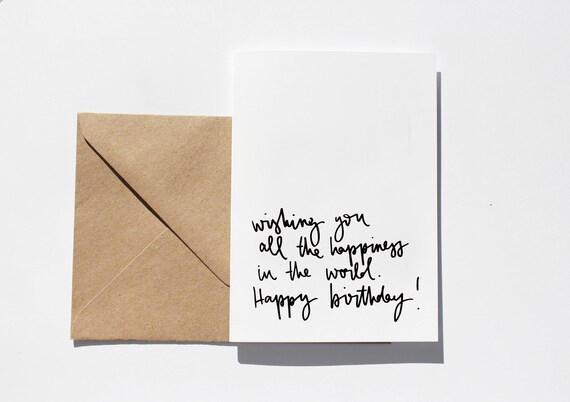 wishing you
all the happiness
in the world.
Happy birthday!